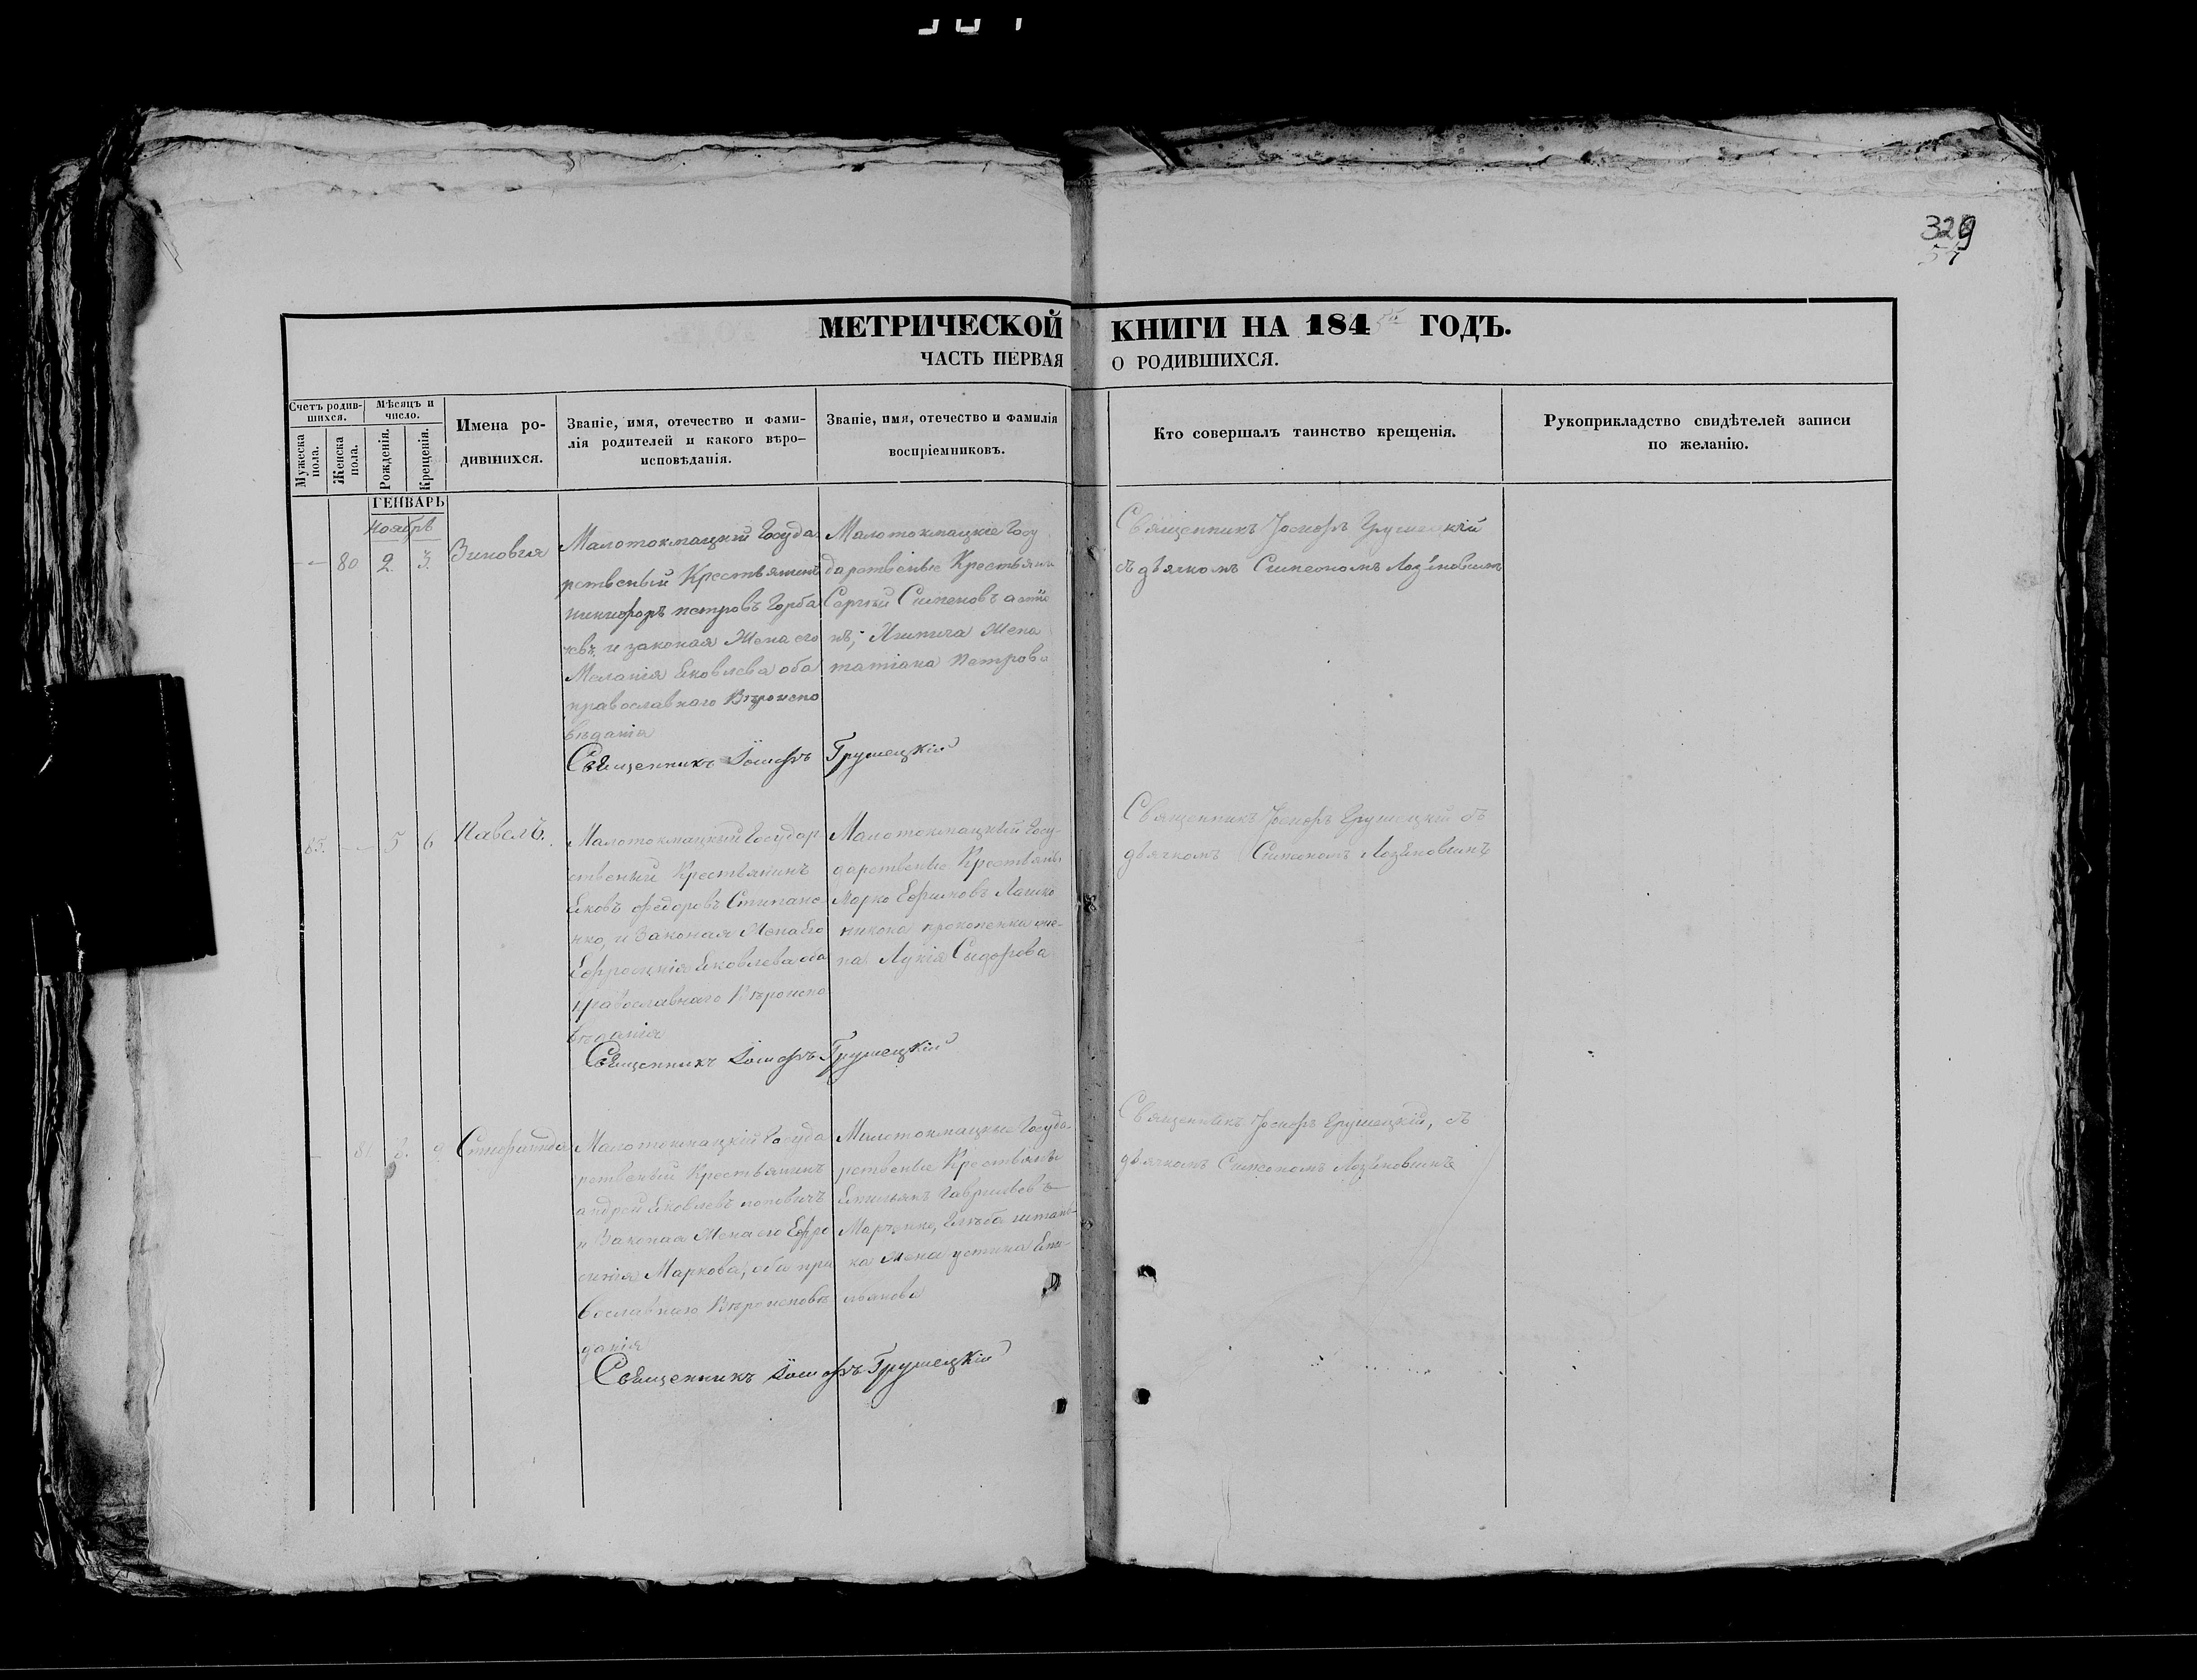 329
57
МЕТРИЧЕСКОЙ КНИГИ НА 1845 ГОДЪ.
ЧАСТЬ ПЕРВАЯ О РОДИВШИХСЯ.
Счетъ родив-
шихся.
Мѣсяцъ и
число.
Мужеска
пола.
Женска
пола.
Рожденія.
Крещенія.
Имена ро-
дившихся.
Званіе, имя, отечество и фами-
лія родителей и какого вѣро-
исповѣданія.
Званіе, имя, отечество и фамилія
воспріемниковъ.
Кто совершалъ таинство крещенія.
Рукоприкладство свидѣтелей записи
по желанію.
ГЕНВАРЬ
Ноябрѣ
80 2. 3.
Зиновия
Малотокмацкій Госуда
рственый Крестьянинъ
никифоръ петровъ Горба
и законая Жена его
Меланія Яковлева оба
православнаго Вѣроиспо
вѣданія
Малотокмацкіе Госу
дарственые Крестьяне
Сергѣй Сименовъ
Жена
татіана Петрова
Священникъ Іосифъ Грушецкій
съ дьячкомъ Симеономъ
Священникъ Іосифъ Грушецкій
85. 5 6
Павелъ.
Малотокмацкый Государ
ственый Крестьянинъ
Яковъ федоровъ Степане
нко, и Законая Жена Его
Ефросинія Яковлева оба
православнаго Вѣроиспо
вѣданія
Малотокмацкый Госу-
дарственые Крестьяне
Марко Ефимовъ
никона прокопенка же-
на Лукія Сыдорова
Священникъ Іосифъ Грушецкій съ
дьячкомъ Симеономъ
Священникъ Іосифъ Грушецкій
81 8. 9
Малотокмацкій Госуда
рственый Крестьянинъ
андрей Яковлевъ поповичъ
и Законая Жена его Ефро
синія Маркова, оба пра
вославнаго Вѣроисповѣ
данія
Малотокмацкые Госуда-
рственые Крестьяне
Емильянъ Гавриловъ
Марченко,
ка жена устина Еми-
льянова
Священникъ Іосифъ Грушецкій, съ
дьячкомъ Симеономъ
Священникъ Іосифъ Грушецкій